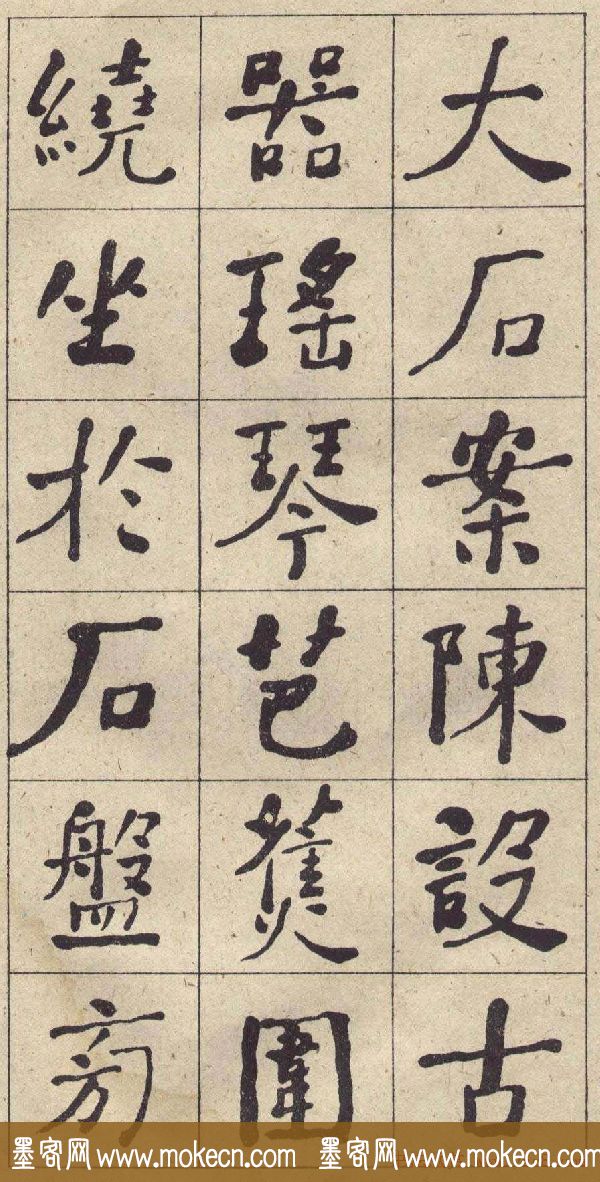 大石案陳設古
器瑤琴芭蕉圍
繞坐於石盤旁
墨客网 www.mokecn.com 墨客网 www.mokecn.com